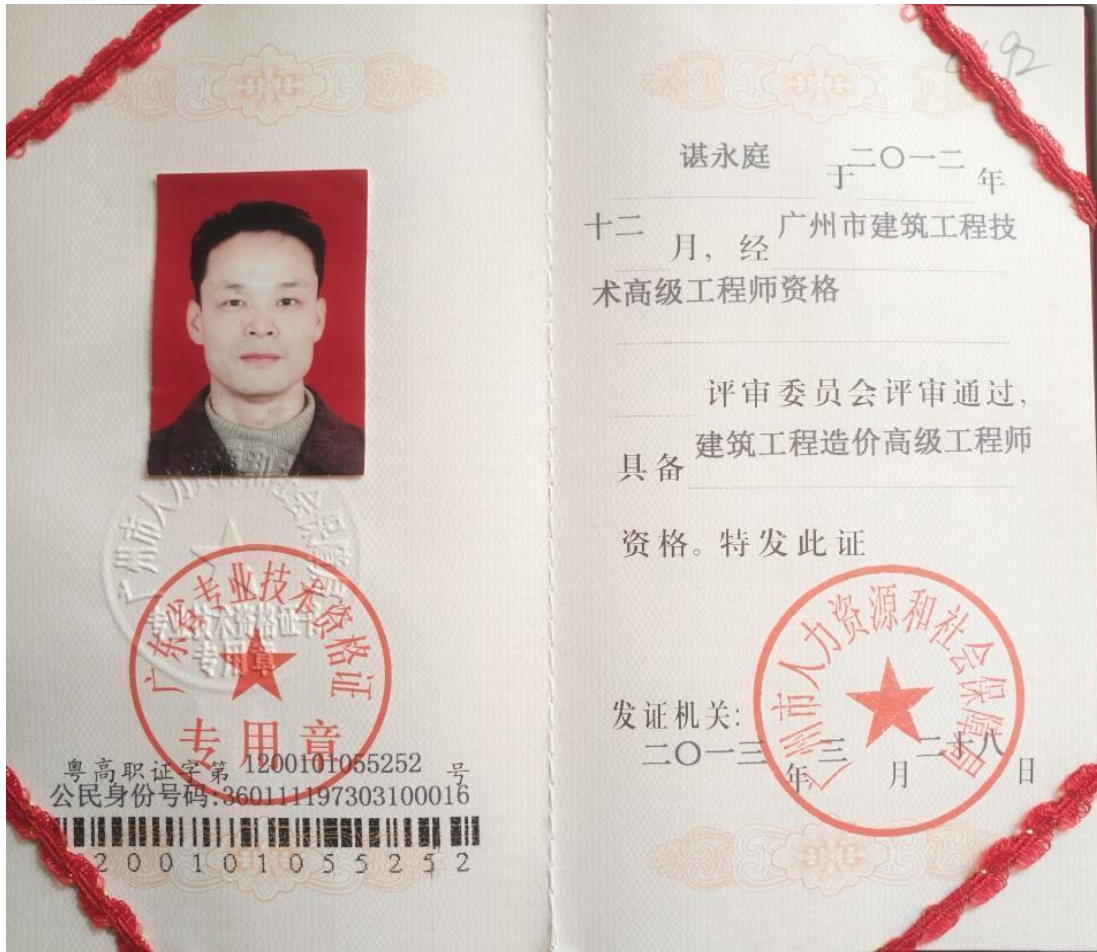 广州市人力资源和社会保障局
专业技术资格证书
专用章
广东省专业技术资格证
专用章
粤高职证字第 1200101055252 号
公民身份号码:360111197303100016
200101055252
谌永庭 于二〇一二年
十二月，经广州市建筑工程技
术高级工程师资格
评审委员会评审通过，
具备建筑工程造价高级工程师
资格。特发此证
广州市人力资源和社会保障局
发证机关：
二〇一三年三月二十八日